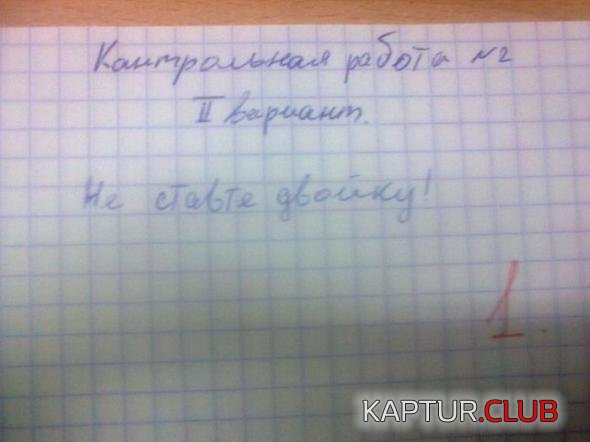 Контрольная работа №2
II вариант.
Не ставте двойку!
1.
KAPTUR.CLUB